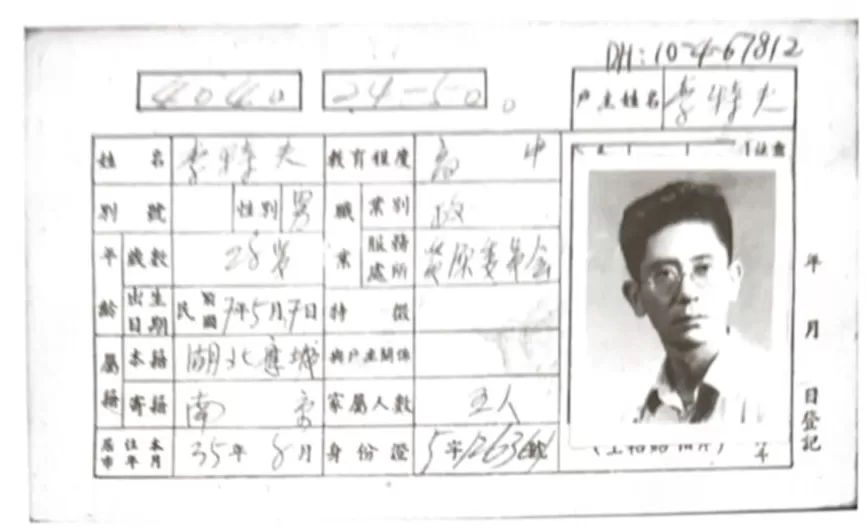 DH:10-4-67812
4040 24-50。
戶主姓名 李特夫
姓名 李特夫 教育程度 高中
別號 性別 男 職業 業別 政
年齡 歲數 28岁 服務處所 資源委員会
出生日期 民國7年5月7日 特徵
屬籍 本籍 湖北應城 與戶主關係
寄籍 南京 家屬人數 五人
居住本市年月 35年8月 身份證 5字126364號
年月日登記